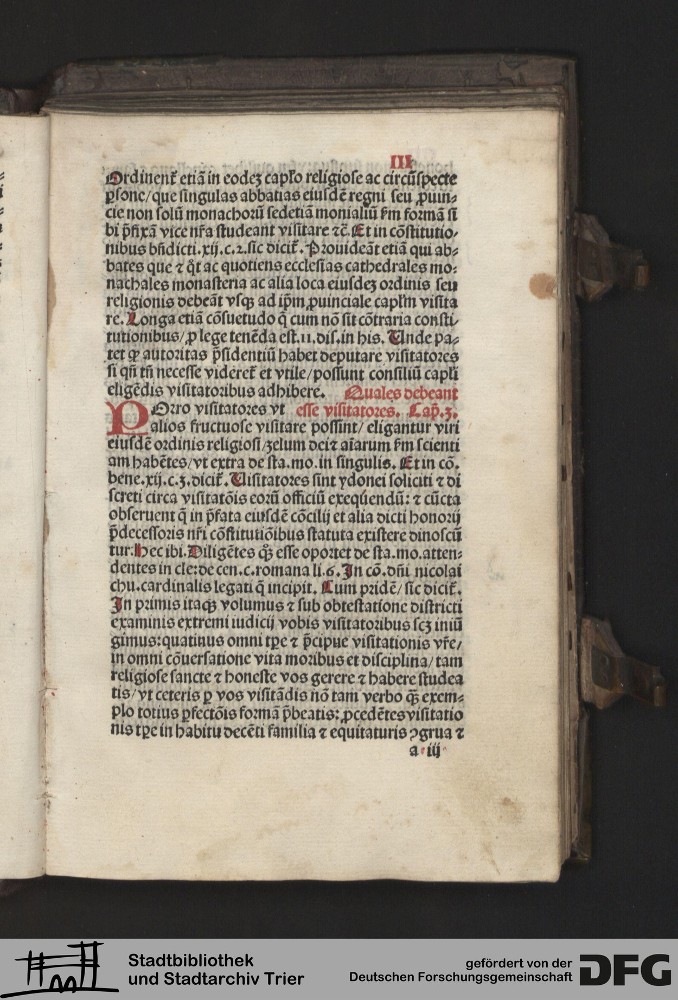 III
Ordinent᷑ etiā in eodeꝫ capło religiose ac circūspecte
ꝑsone/que singulas abbatias eiusdē regni seu ꝓuin-
cie non solū monachorū sed etiā monialiū ẜm formā si
bi p̄fixā vice nr̄a studeant visitare ⁊c̄. Et in cōstitutio-
nibus bn̄dicti.xij.c.2.sic dicit᷑. Prouideāt etiā qui ab-
bates que ⁊ qͦt ac quotiens ecclesias cathedrales mo-
nachales monasteria ac alia loca eiusdeꝫ ordinis seu
religionis debeāt vsqꝫ ad ip̄m ꝓuinciale capłm visita
re. Longa etiā cōsuetudo q̄ cum nō sit cōtraria consti-
tutionibus/ꝓ lege tenēda est.11.dis.in his. Unde pa-
tet ꝙ autoritas p̄sidentiū habet deputare visitatores
si qn̄ tn̄ necesse videret᷑ et vtile/possunt consiliū capłi
eligēdis visitatoribus adhibere. Quales debeant
POrro visitatores vt esse visitatores. Cap̄.3.
alios fructuose visitare possint/eligantur viri
eiusdē ordinis religiosi/zelum dei ⁊ aīarum ẜm scienti
am habētes/vt extra de sta.mo.in singulis. Et in cō.
bene.xij.c.3.dicit᷑. Visitatores sint ydonei soliciti ⁊ di
screti circa visitatōis eorū officiū exequendū: ⁊ cūcta
obseruent q̄ in p̄fata eiusdē cōcilij et alia dicti honorij
p̄decessoris nr̄i cōstitutiōibus statuta existere dinoscū
tur: Hec ibi. Diligētes qꝫ esse oportet de sta.mo.atten-
dentes in cle: de cen.c.romana li.6. In cō.dn̄i nicolai
chu.cardinalis legati q̄ incipit. Cum pridē/sic dicit᷑.
In primis itaqꝫ volumus ⁊ sub obtestatione districti
examinis extremi iudicij vobis visitatoribus scꝫ iniū
gimus: quatinus omni tp̄e ⁊ p̄cipue visitationis vr̄e/
in omni cōuersatione vita moribus et disciplina/tam
religiose sancte ⁊ honeste vos gerere ⁊ habere studea
tis/vt ceteris ꝑ vos visitādis nō tam verbo qꝫ exem-
plo totius ꝑfectōis formā p̄beatis: ꝓcedētes visitatio
nis tp̄e in habitu decēti familia ⁊ equitaturis ꝯgrua ⁊
a iij
Stadtbibliothek
und Stadtarchiv Trier
gefördert von der
Deutschen Forschungsgemeinschaft
DFG